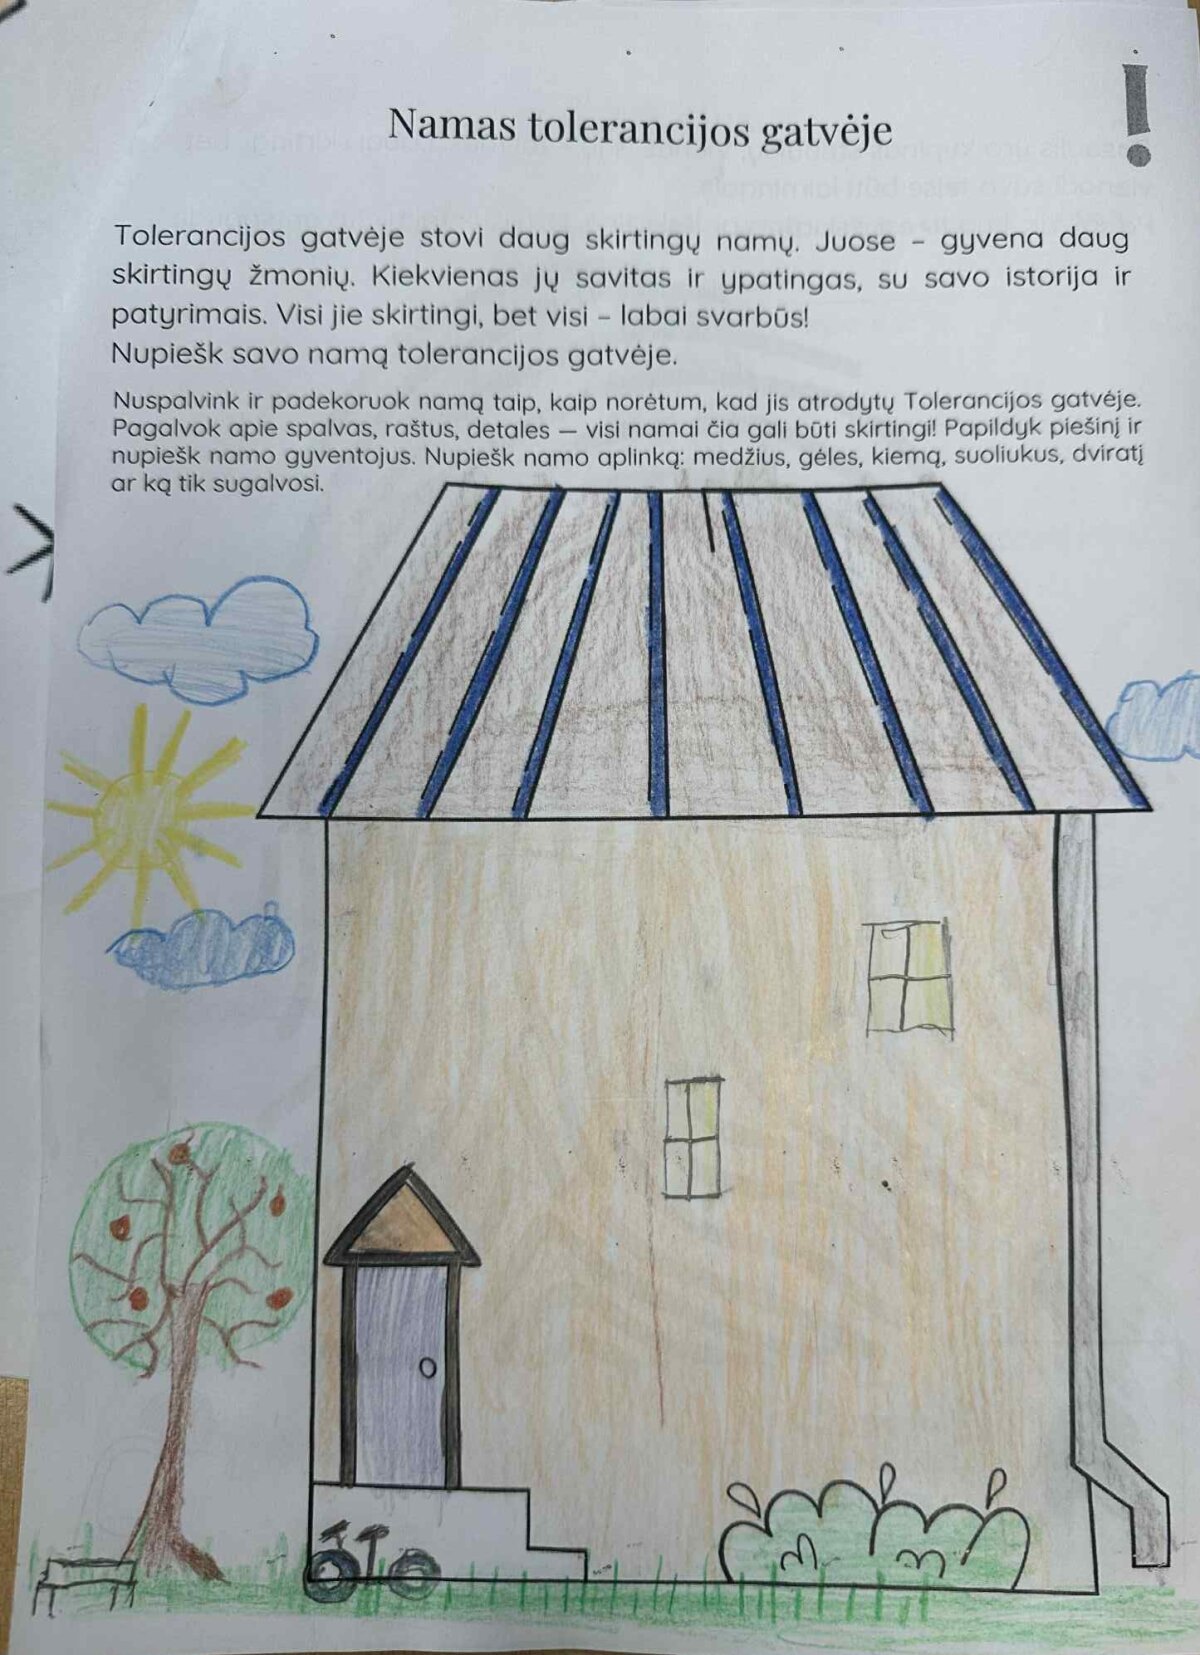 Namas tolerancijos gatvėje
Tolerancijos gatvėje stovi daug skirtingų namų. Juose – gyvena daug
skirtingų žmonių. Kiekvienas jų savitas ir ypatingas, su savo istorija ir
patyrimais. Visi jie skirtingi, bet visi – labai svarbūs!
Nupiešk savo namą tolerancijos gatvėje.
Nuspalvink ir padekoruok namą taip, kaip norėtum, kad jis atrodytų Tolerancijos gatvėje.
Pagalvok apie spalvas, raštus, detales — visi namai čia gali būti skirtingi! Papildyk piešinį ir
nupiešk namo gyventojus. Nupiešk namo aplinką: medžius, gėles, kiemą, suoliukus, dviratį
ar ką tik sugalvosi.